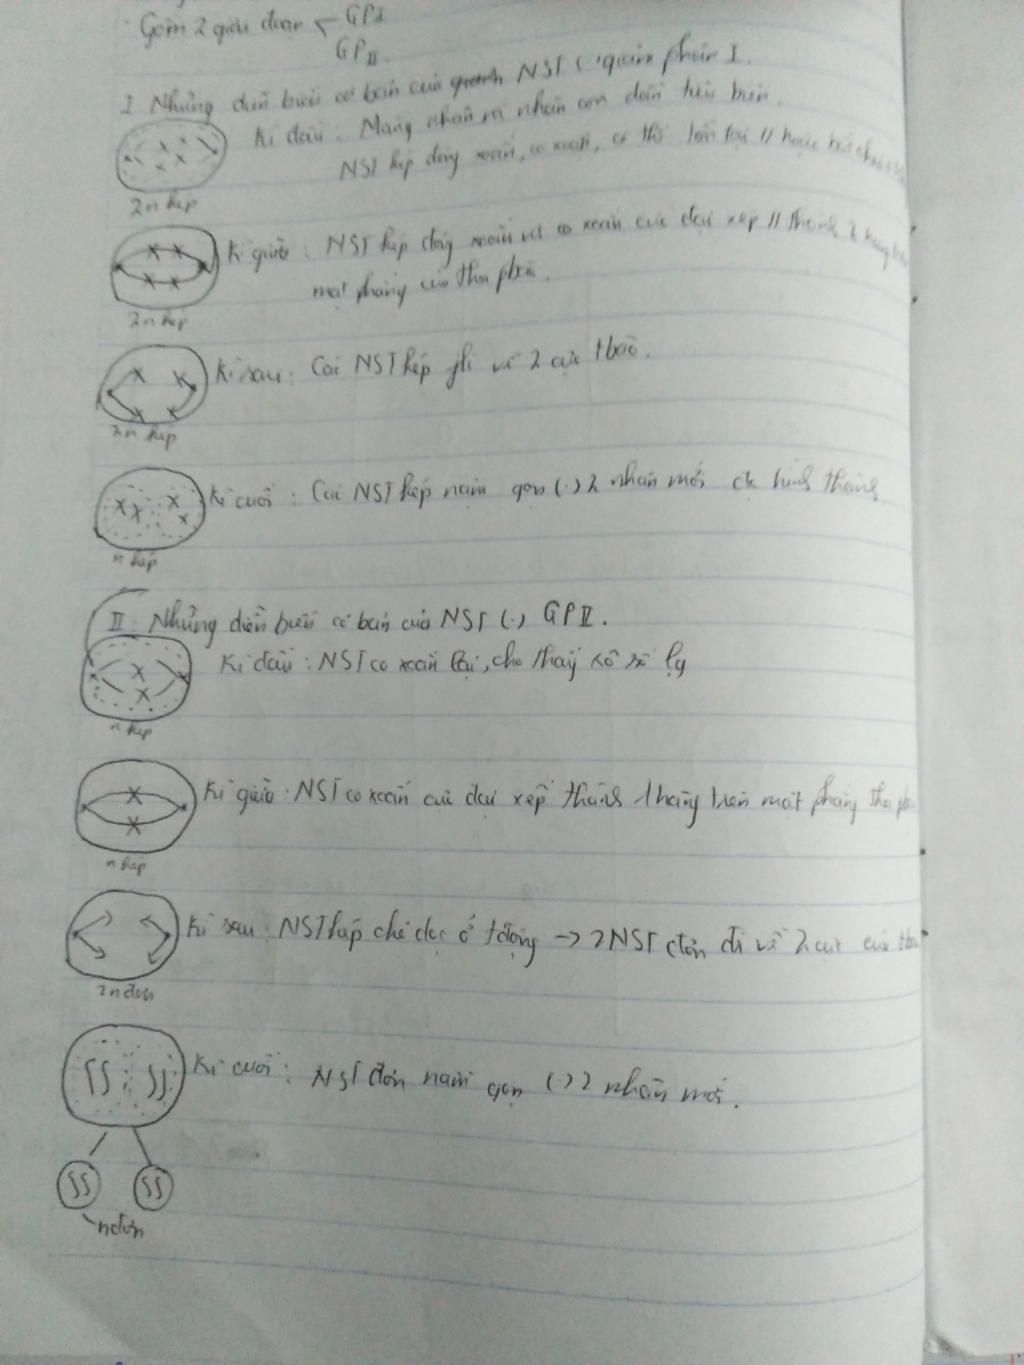 Gồm 2 giai đoạn GPI
GPII
I Những diễn biến cơ bản của NST (.) giảm phân I.
Kì đầu: Màng nhân và nhân con dần tiêu biến.
NST kép đóng xoắn, co xoắn, có thể tồn tại // hoặc
2n kép
Kì giữa: NST kép đóng xoắn và co xoắn cực đại xếp // thành 2 hàng
mặt phẳng của thoi phân.
2n kép
Kì sau: Các NST kép pli về 2 cực tbào.
2n kép
Kì cuối: Các NST kép nằm gọn (.) 2 nhân mới đc hình thành
n kép
II. Những diễn biến cơ bản của NST (.) GPII.
Kì đầu: NST co xoắn lại, cho thấy số lg
n kép
Kì giữa: NST co xoắn cực đại xếp thành 1 hàng trên mặt phẳng thoi
n kép
Kì sau: NST kép chẻ dọc ở tđộng -> 2 NST đơn đi về 2 cực của
2n đơn
Kì cuối: NST đơn nằm gọn (.) 2 nhân mới.
n đơn